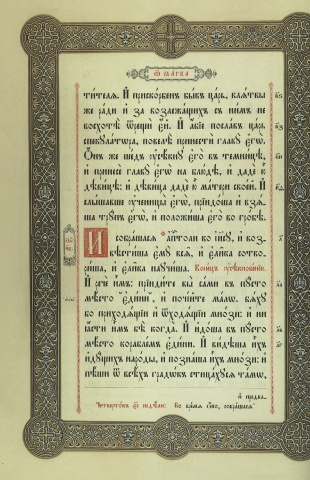 Ѿ МАРКА
тителѧ. И҆ приско́рбенъ бы́въ ца́рь, клѧ́твы
же ра́ди и҆ за возлежа́щихъ съ ни́мъ не
восхотѣ̀ ѿрещѝ є҆́й. И҆ а҆́бїе посла́въ ца́рь
спекꙋла́тора, повелѣ̀ принестѝ главꙋ̀ є҆гѡ̀.
Ѻ҆́нъ же ше́дъ ᲂу҆сѣ́кнꙋ є҆го̀ въ темни́цѣ,
и҆ принесѐ главꙋ̀ є҆гѡ̀ на блю́дѣ, и҆ дадѐ ю҆̀
дѣви́цѣ: и҆ дѣви́ца дадѐ ю҆̀ ма́тери свое́й. И҆
слы́шавше ᲂу҆ченицы̀ є҆гѡ̀, прїидо́ша и҆ взѧ́-
ша трꙋ́пъ є҆гѡ̀, и҆ положи́ша є҆го̀ во гро́бѣ.
И҆ собра́шасѧ а҆пⷭ҇толи ко і҆и҃сꙋ, и҆ воз-
вѣсти́ша є҆мꙋ̀ всѧ̑, и҆ є҆ли̑ка сотво-
ри́ша, и҆ є҆ли̑ка наꙋчи́ша. Коне́цъ ᲂу҆сѣкнове́нїю.
И҆ речѐ и҆̀мъ: прїиди́те вы̀ са́ми въ пꙋ́сто
мѣ́сто є҆ди́ни, и҆ почі́йте ма́лѡ. бѧ́хꙋ
бо приходѧ́щїи и҆ ѿходѧ́щїи мно́зи: и҆ ни
ꙗ҆́сти и҆̀мъ бѣ̀ когда̀. И҆ и҆до́ша въ пꙋ́сто
мѣ́сто корабле́мъ є҆ди́ни. И҆ ви́дѣша и҆̀хъ
и҆дꙋ́щихъ наро́ди, и҆ позна́ша и҆̀хъ мно́зи: и҆
пѣ́ши ѿ всѣ́хъ градѡ́въ стица́хꙋсѧ та́мѡ,
и҆ предва-
Четверто́къ є҃і недѣ́ли: Во вре́мѧ ѻ҆́но, собра́шасѧ